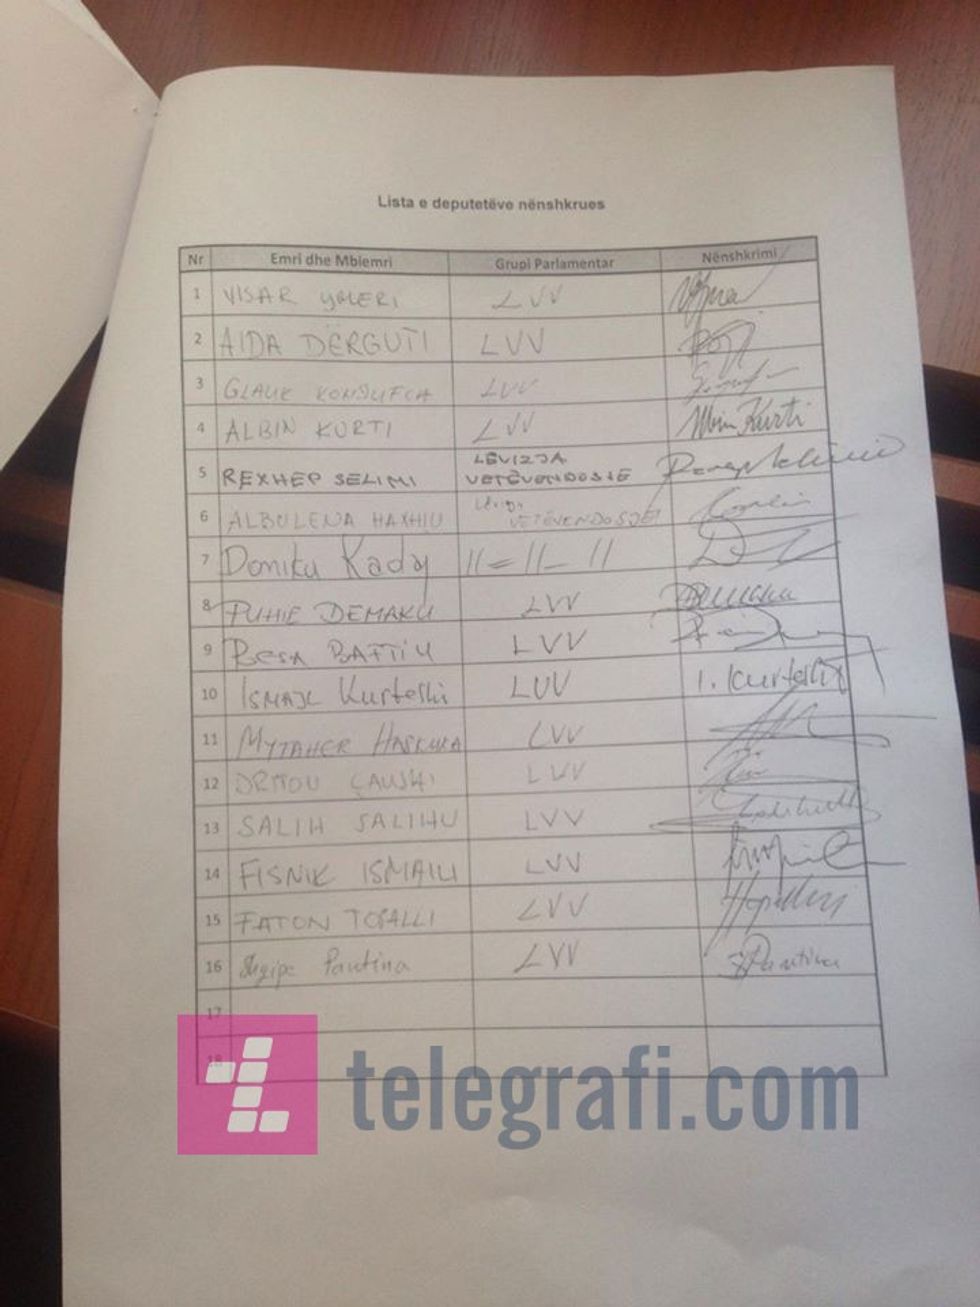 Lista e deputetëve nënshkrues
Nr Emri dhe Mbiemri Grupi Parlamentar Nënshkrimi
1 VISAR YMERI LVV
2 AIDA DËRGUTI LVV
3 GLAUK KONJUFCA LVV
4 ALBIN KURTI LVV Albin Kurti
5 REXHEP SELIMI LËVIZJA VETËVENDOSJE
6 ALBULENA HAXHIU VETËVENDOSJE!
7 Donika Kada 11 = 11 - 11
8 PUHIE DEMAKU LVV
9 BESA BAFTIU LVV
10 ISMAJL Kurteshi LVV I. Kurteshi
11 MYTAHER HASKUKA LVV
12 DRITON ÇAUSHI LVV
13 SALIH SALIHU LVV
14 FISNIK ISMAILI LVV
15 FATON TOPALLI LVV
16 Shqipe Pantina LVV SHPantina
17
18
telegrafi.com